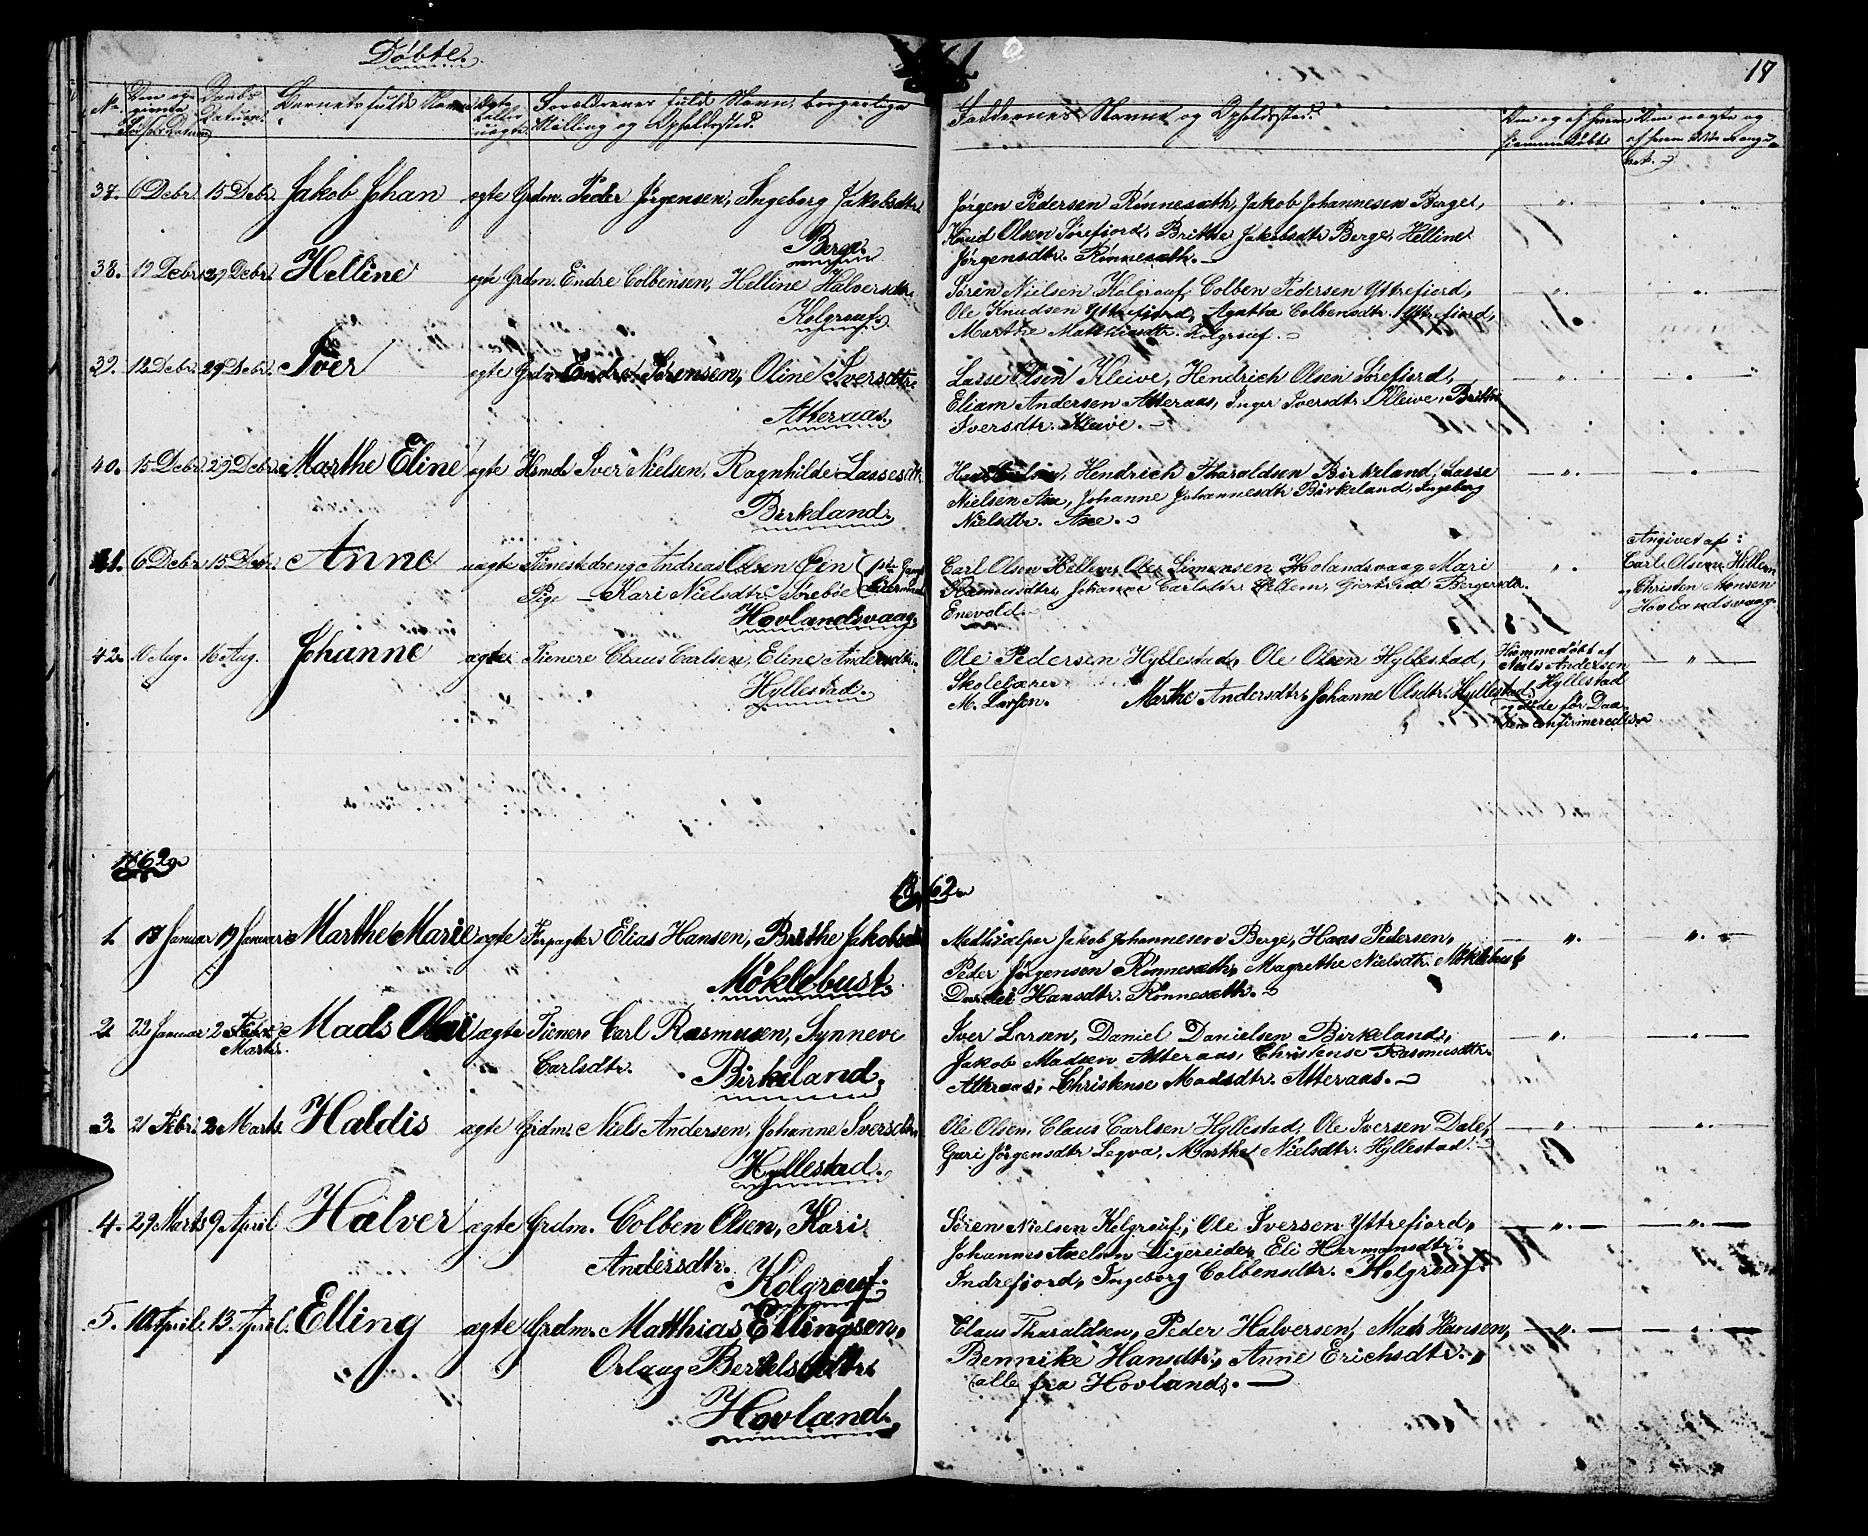 Døbte.
18
No
Barnets fulde Navn
Forældrenes fulde Navn, borgerlige
Stilling og Opholdssted.
Faddernes Navne og Opholdssted.
37. 6 Debr. 15 Debr. Jakob Johan ægte Grdm. Peder Jørgensen, Ingeborg Jakobsdtr.
Berge.
Jørgen Pedersen Rønnesæth, Jakob Johannesen Berge,
Knud Olsen Sørefjord, Brithe Jakobsdtr Berge, Helline
Jørgensdtr. Rønnesæth.
38. 12 Debr. 29 Debr. Helline ægte Grdm. Endre Colbensen, Helline Halversdtr.
Kolgrouf.
Søren Nielsen Kolgrouf, Colben Pedersen Yttrefjord,
Ole Knudsen Yttrefjord, Agathe Colbensdtr. Yttrefjord,
Marthe Matthiasdtr. Kolgrouf.
39. 12 Debr. 29 Debr. Iver ægte Grdm. Endre Sørensen, Oline Iversdtr.
Atteraas.
Lasse Olsen Kleive, Hendrich Olsen Sørefjord,
Eliam Andersen Atteraas, Inger Iversdtr. Kleive, Brithe
Iversdtr. Kleive.
40. 15 Debr. 29 Debr. Marthe Eline ægte Hsmd. Iver Nielsen, Ragnhilde Lassesdtr
Birkeland.
Hendrich Tharaldsen Birkeland, Lasse
Nielsen Aae, Johanne Johannesdtr Birkeland, Ingeborg
Nielsdtr. Aae.
41. 6 Debr. 15 Debr. Anne uægte Tjenestedreng Andreas Olsen Øen
Pige Kari Nielsdtr. Sørebøe
Hovlandsvaag.
Carl Olsen Hellem, Ole Simensen Hovlandsvaag Mari
Rasmusdtr, Johanne Carlsdtr Hellem, Bergersdtr.
Enevold.
Angivet af:
Carl Olsen Hellem
og Christen Monsen
Hovlandsvaag.
42. 10 Aug. 16 Aug. Johanne ægte Tienere Claus Carlsen, Eline Andersdtr.
Hyllestad.
Ole Pedersen Hyllestad, Ole Olsen Hyllestad,
Skolelærer
M. Larsen. Marthe Andersdtr, Johanne Olsdtr. Hyllestad.
Hjemmedøbt af
Niels Andersen
Hyllestad
og døde før Daa-
ben confirmeredes
1862.
1862.
1. 17 Januar 19 Januar Marthe Marie ægte Forpagter Elias Hansen, Brithe Jakobsdtr
Møklebust.
Medhjælper Jakob Johannesen Berge, Haas Pedersen,
Peder Jørgensen Rønnesæth, Magrethe Nielsdtr. Møklebust
Dordei Hansdtr. Rønnesæth.
2. 22 Januar 2 Marts. Mads Olai ægte Tienere Carl Rasmusen, Synneve
Carlsdtr.
Birkeland.
Iver Larsen, Daniel Danielsen Birkeland,
Jakob Madsen Atteraas, Christense Rasmusdtr.
Atteraas, Christense Madsdtr. Atteraas.
3. 21 Febr. 2 Marts. Haldis ægte Grdm. Niels Andersen, Johanne Iversdtr.
Hyllestad.
Ole Olsen, Claus Carlsen Hyllestad, Ole Iversen Dale,
Guri Jørgensdtr Legva, Marthe Nielsdtr. Hyllestad.
4. 29 Marts 9 April Halver ægte Grdm. Colben Olsen, Kari
Andersdtr.
Kolgrouf.
Søren Nielsen Kolgrouf, Ole Iversen Yttrefjord,
Johannes Axelsen Ligereide, Eli Hermansdtr.
Indrefjord, Ingeborg Colbensdtr. Kolgrouf.
5. 10 April. 13 April. Elling ægte Grdm. Matthias Ellingsen,
Orlaug Bertelsdtr.
Hovland.
Claus Tharaldsen, Peder Halversen, Mads Hansen,
Bennike Hansdtr, Anne Erichsdtr.
(alle fra Hovland).